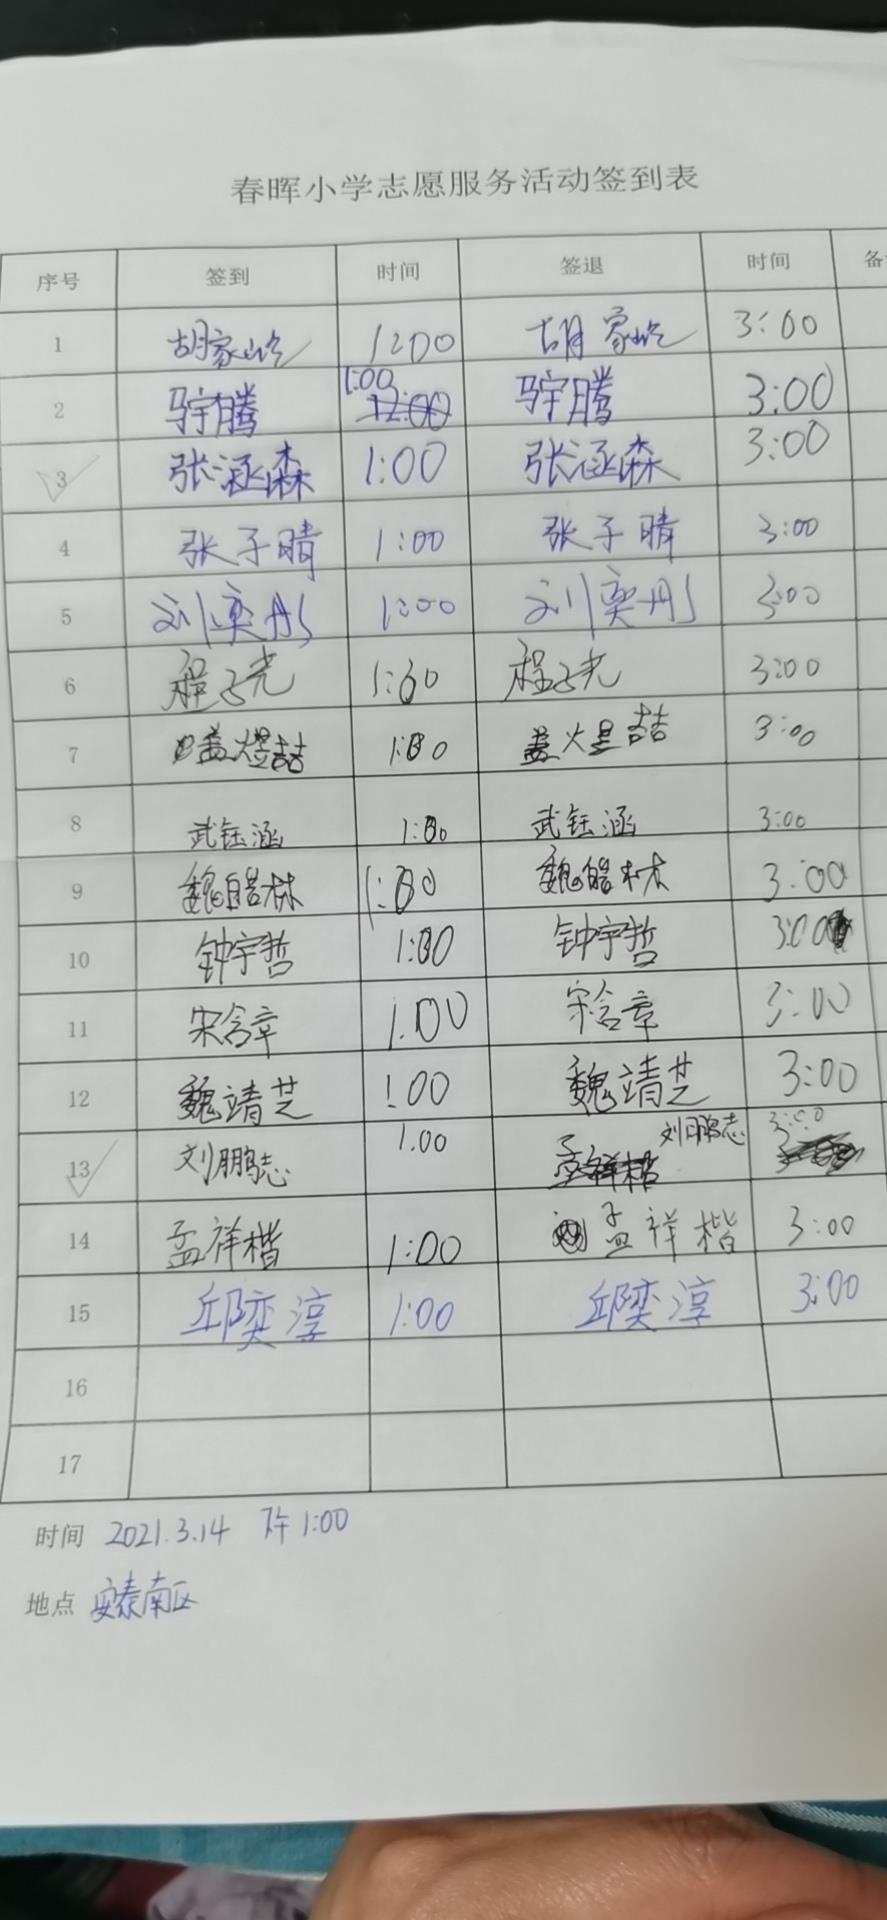 春晖小学志愿服务活动签到表
序号 签到 时间 签退 时间 备
1 胡家屹 1:00 胡家屹 3:00
2 马宇腾 1:00 12:00 马宇腾 3:00
3 张涵森 1:00 张涵森 3:00
4 张子晴 1:00 张子晴 3:00
5 刘奕彤 1:00 刘奕彤 3:00
6 程子光 1:00 程子光 3:00
7 盖煜喆 1:00 盖煜喆 3:00
8 武钰涵 1:00 武钰涵 3:00
9 魏皓林 1:00 魏皓林 3:00
10 钟宇哲 1:00 钟宇哲 3:00
11 宋含章 1:00 宋含章 3:00
12 魏靖芝 1:00 魏靖芝 3:00
13 刘鹏志 1.00 孟祥楷 刘鹏志 3:00
14 孟祥楷 1:00 孟祥楷 3:00
15 邱奕淳 1:00 邱奕淳 3:00
16
17
时间 2021.3.14 下午1:00
地点 安泰南区